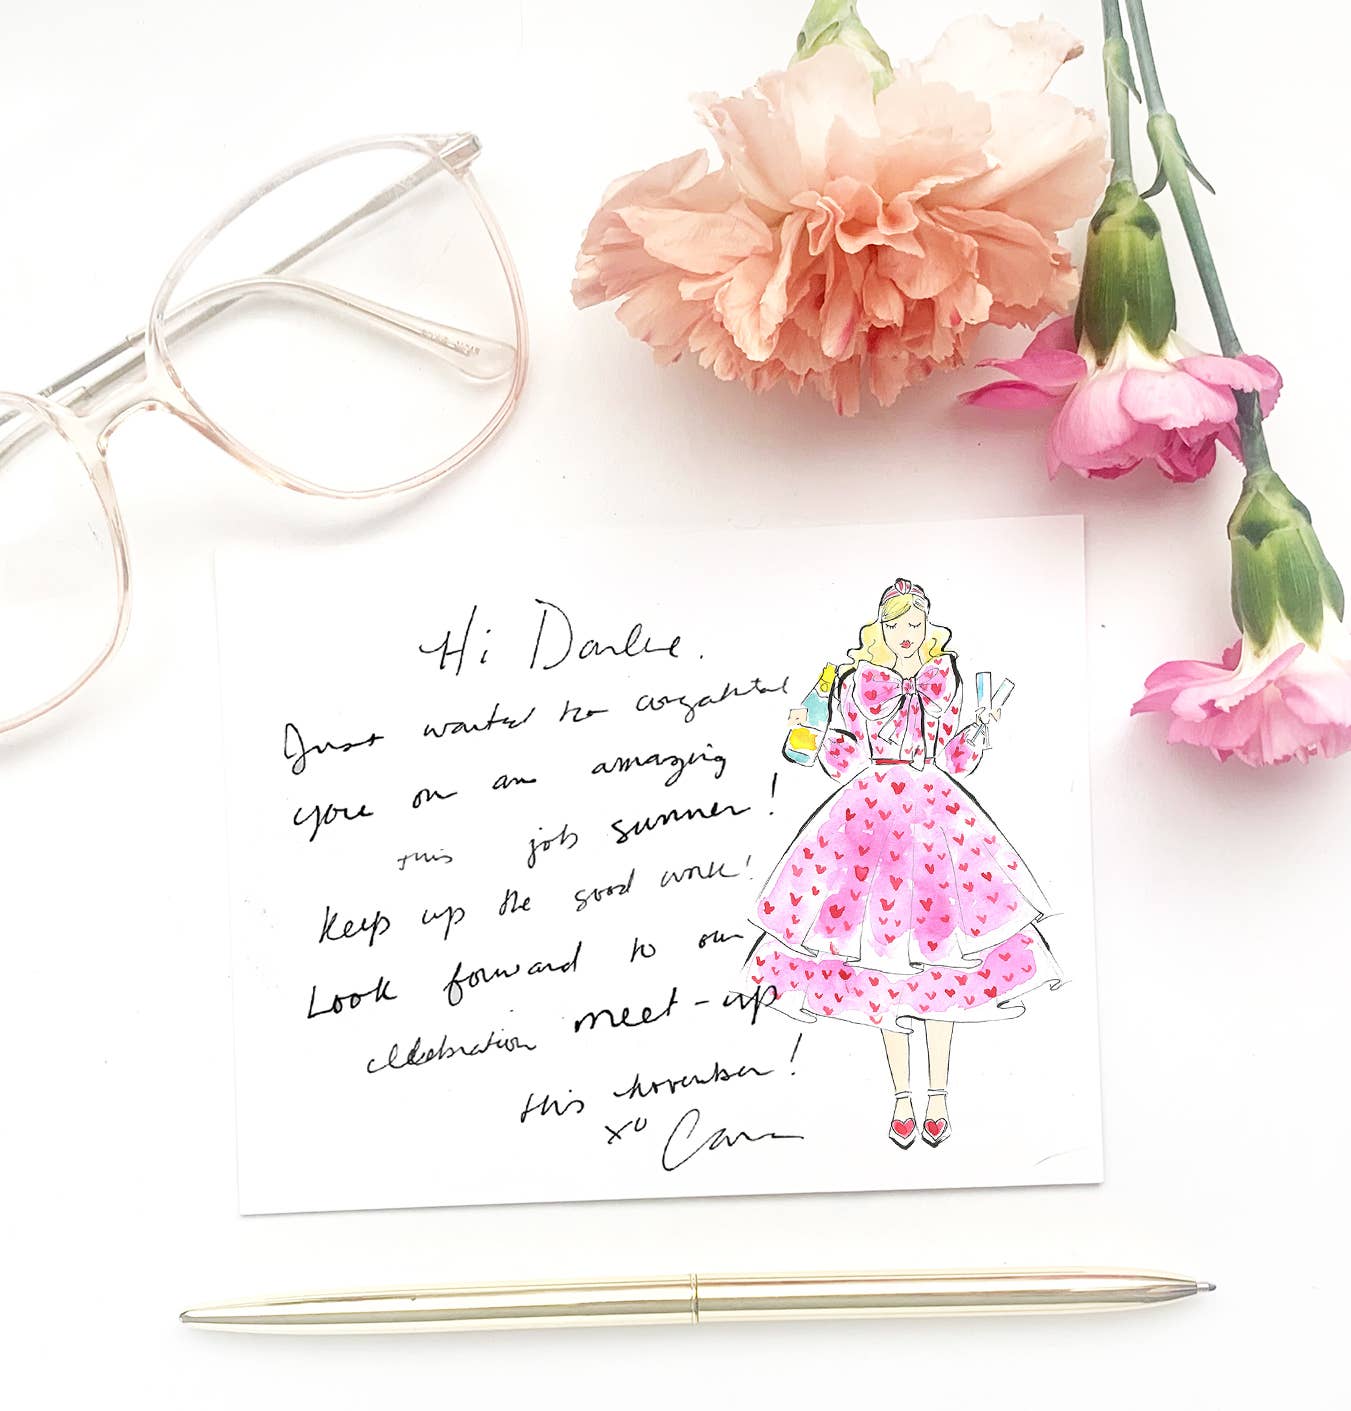 Hi Darlene.
Just wanted to congratulate
you on an amazing
this job summer!
Keep up the good work!
Look forward to our
celebration meet-up
this November!
xo Cara